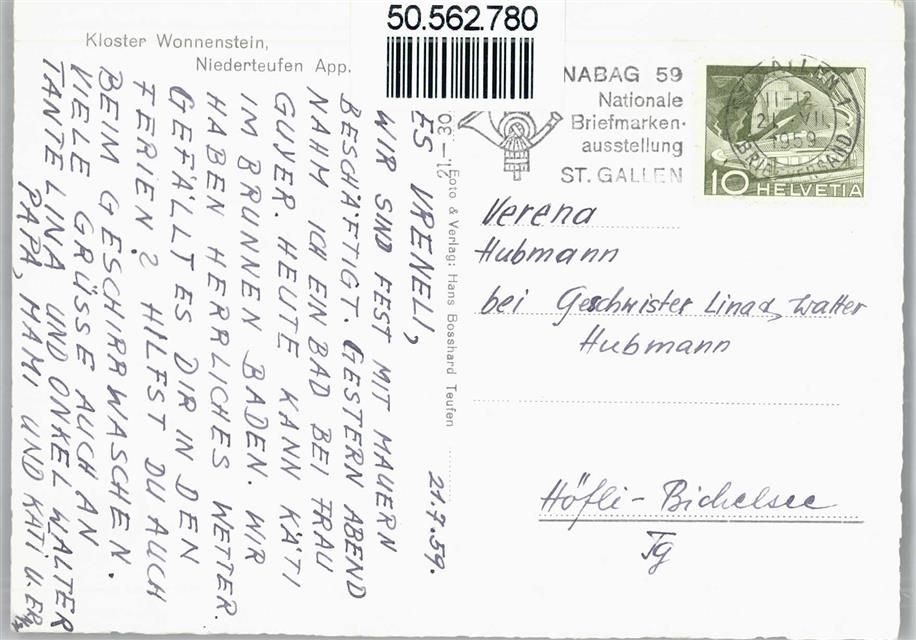 50.562.780
Kloster Wonnenstein,
Niederteufen App.
NABAG 59
Nationale
Briefmarken-
ausstellung
ST. GALLEN
ALLEN 1
11-12
21. VII.
1959
BRIEFVERSAND
10 HELVETIA
30.–12
Foto & Verlag: Hans Bosshard Teufen
21.7.59.
ES VRENELI,
WIR SIND FEST MIT MAUERN
BESCHÄFTIGT. GESTERN ABEND
NAHM ICH EIN BAD BEI FRAU
GUJER. HEUTE KANN KÄTI
IM BRUNNEN BADEN. WIR
HABEN HERRLICHES WETTER.
GEFÄLLT ES DIR IN DEN
FERIEN? HILFST DU AUCH
BEIM GESCHIRRWASCHEN.
VIELE GRÜSSE AUCH AN
TANTE LINA UND ONKEL WALTER
PAPA, MAMI UND KÄTI U.
Verena
Hubmann
bei Geschwister Lina & Walter
Hubmann
Höfli-Bichelsee
Tg